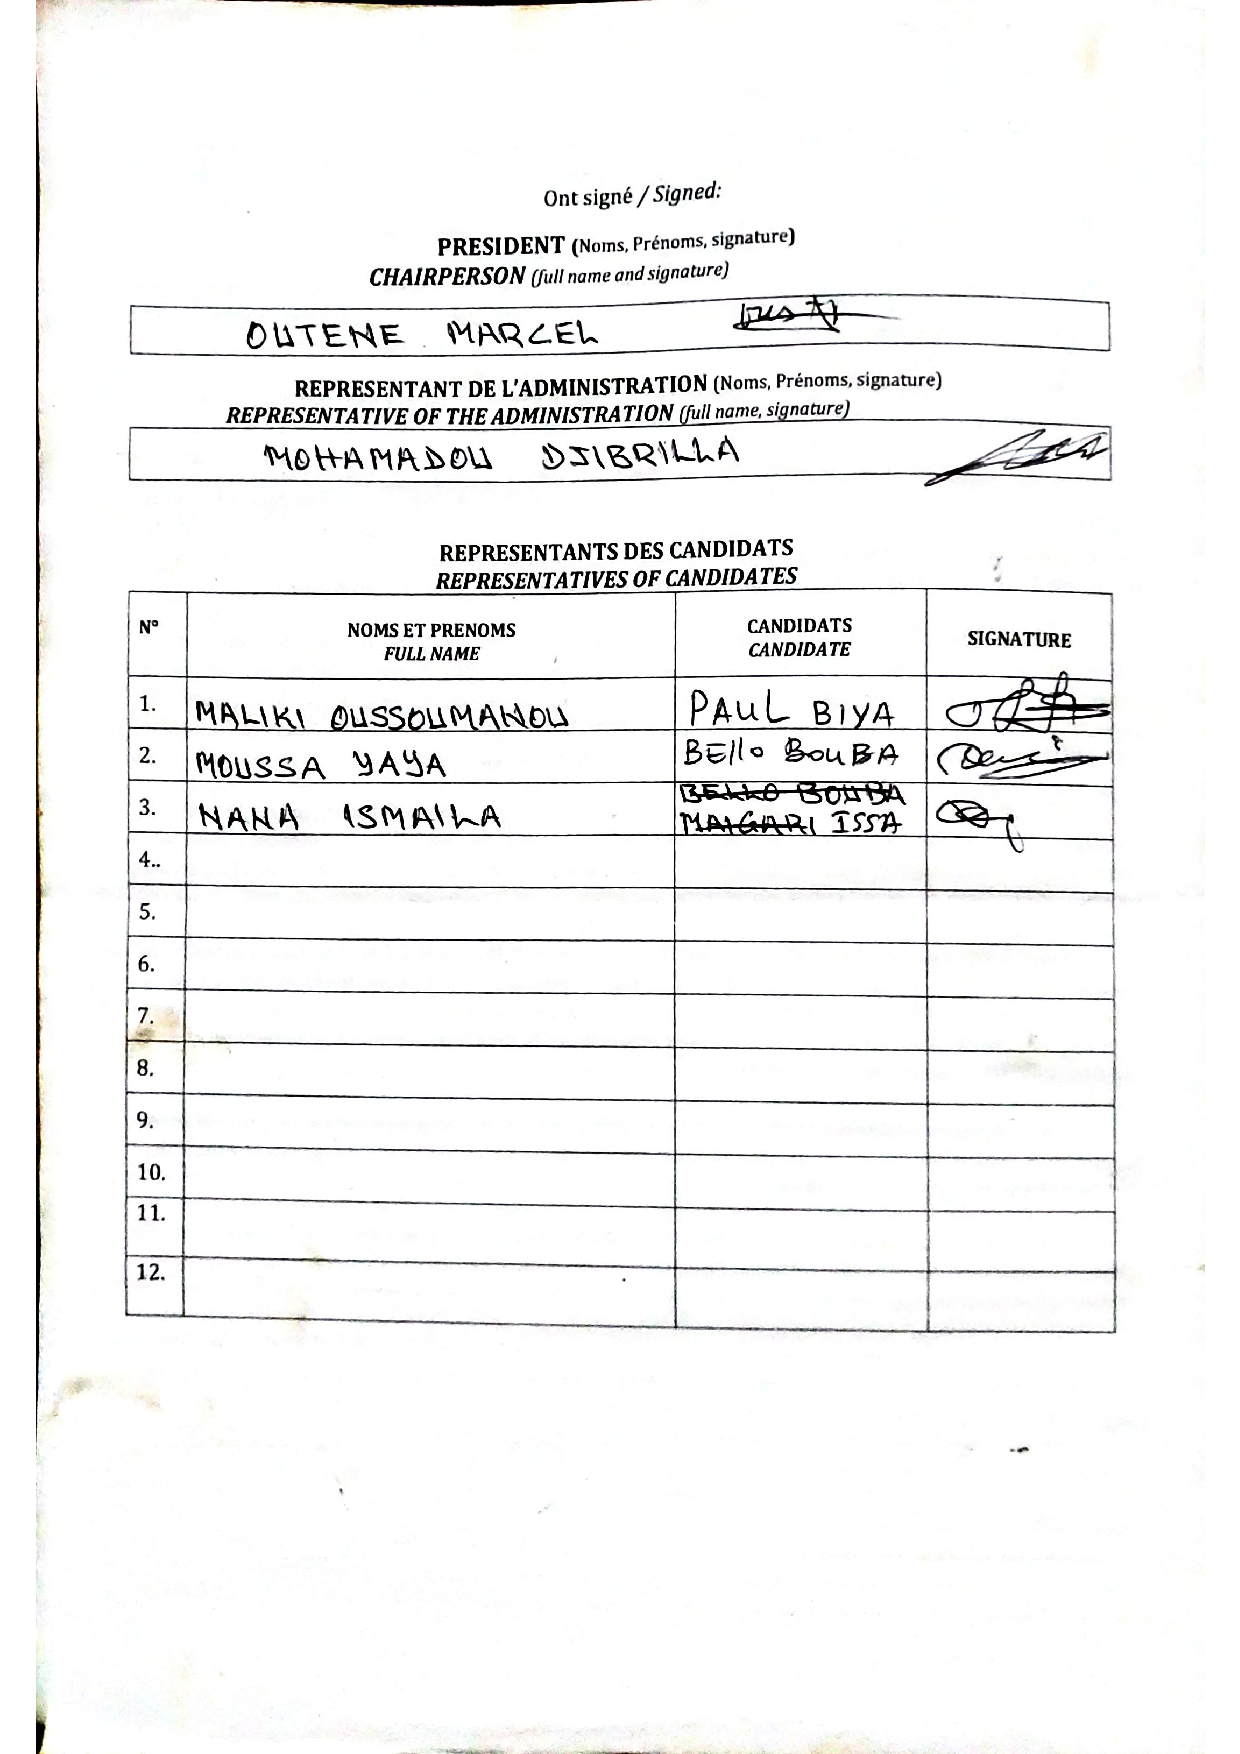 Ont signé / Signed:
PRESIDENT (Noms, Prénoms, signature)
CHAIRPERSON (full name and signature)
OUTENE MARCEL
REPRESENTANT DE L'ADMINISTRATION (Noms, Prénoms, signature)
REPRESENTATIVE OF THE ADMINISTRATION (full name, signature)
MOHAMADOU DJIBRILLA
REPRESENTANTS DES CANDIDATS
REPRESENTATIVES OF CANDIDATES
N° NOMS ET PRENOMS FULL NAME CANDIDATS CANDIDATE SIGNATURE
1. MALIKI OUSSOUMANOU PAUL BIYA
2. MOUSSA YAYA BEllo BOUBA
3. NANA ISMAILA BELLO BOUBA
MAIGARI ISSA
4..
5.
6.
7.
8.
9.
10.
11.
12.